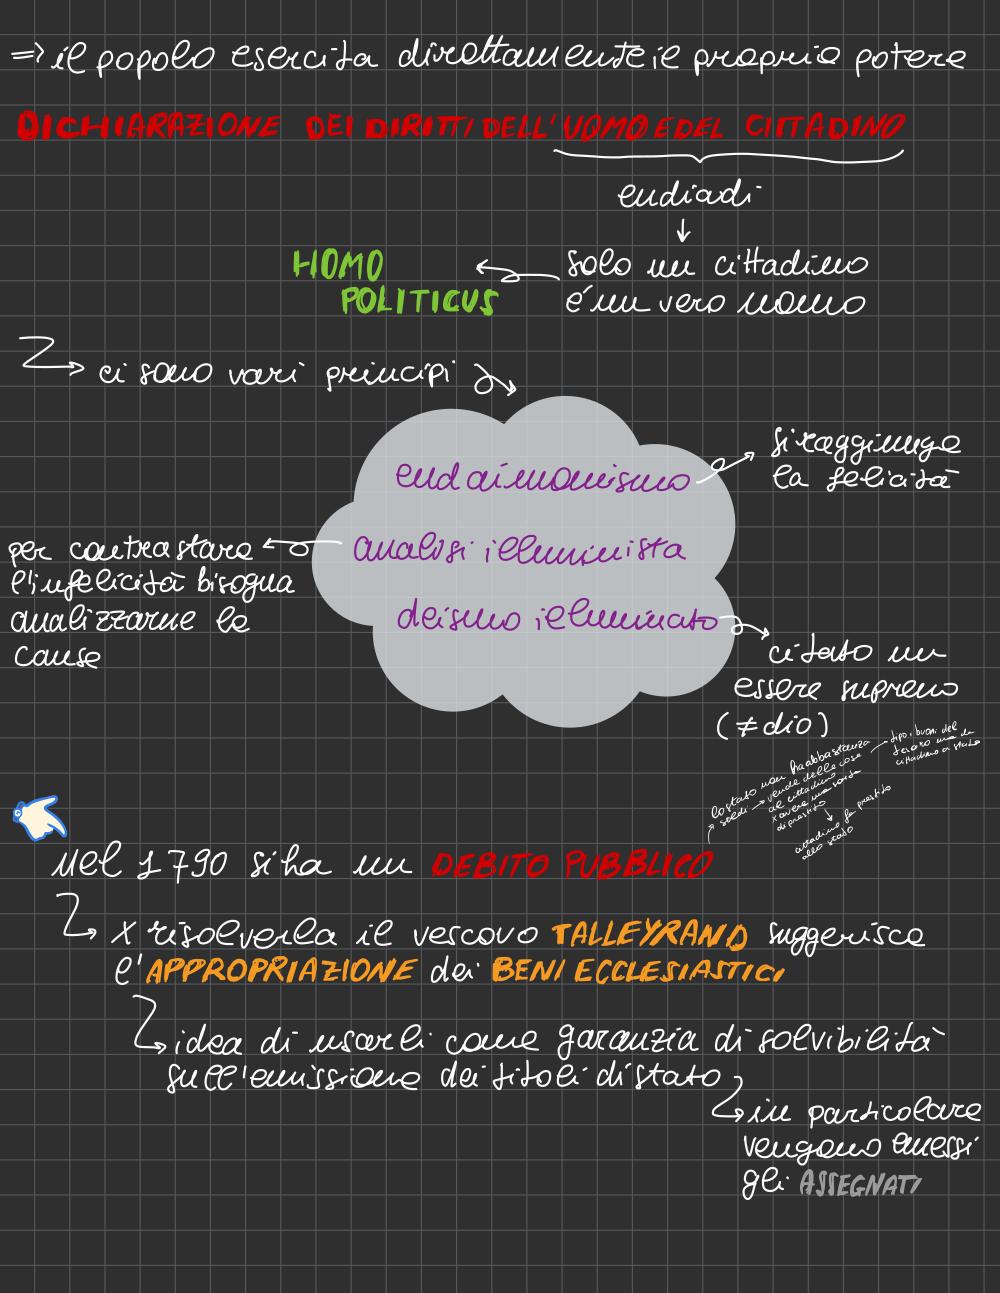 => il popolo esercita direttamente il proprio potere
DICHIARAZIONE DEI DIRITTI DELL'UOMO E DEL CITTADINO
endiadi
↓
HOMO
POLITICUS
solo un cittadino
é un vero uomo
ci sono vari principi
eudaimonismo
si raggiunge
la felicità
analisi illuminista
per contrastare
l'infelicità bisogna
analizzarne le
cause
deismo illuminato
citato un
essere supremo
(≠ dio)
lo stato non ha abbastanza
soldi → vende delle cose
al cittadino
x avere una sorta
di prestito
tipo i buoni del
tesoro
cittadino a stato
cittadino fa prestito
allo stato
Nel 1790 si ha un DEBITO PUBBLICO
x risolverla il vescovo TALLEYRAND suggerisce
l'APPROPRIAZIONE dei BENI ECCLESIASTICI
idea di usarli come garanzia di solvibilità
sull'emissione dei titoli di stato
in particolare
vengono emessi
gli ASSEGNATI